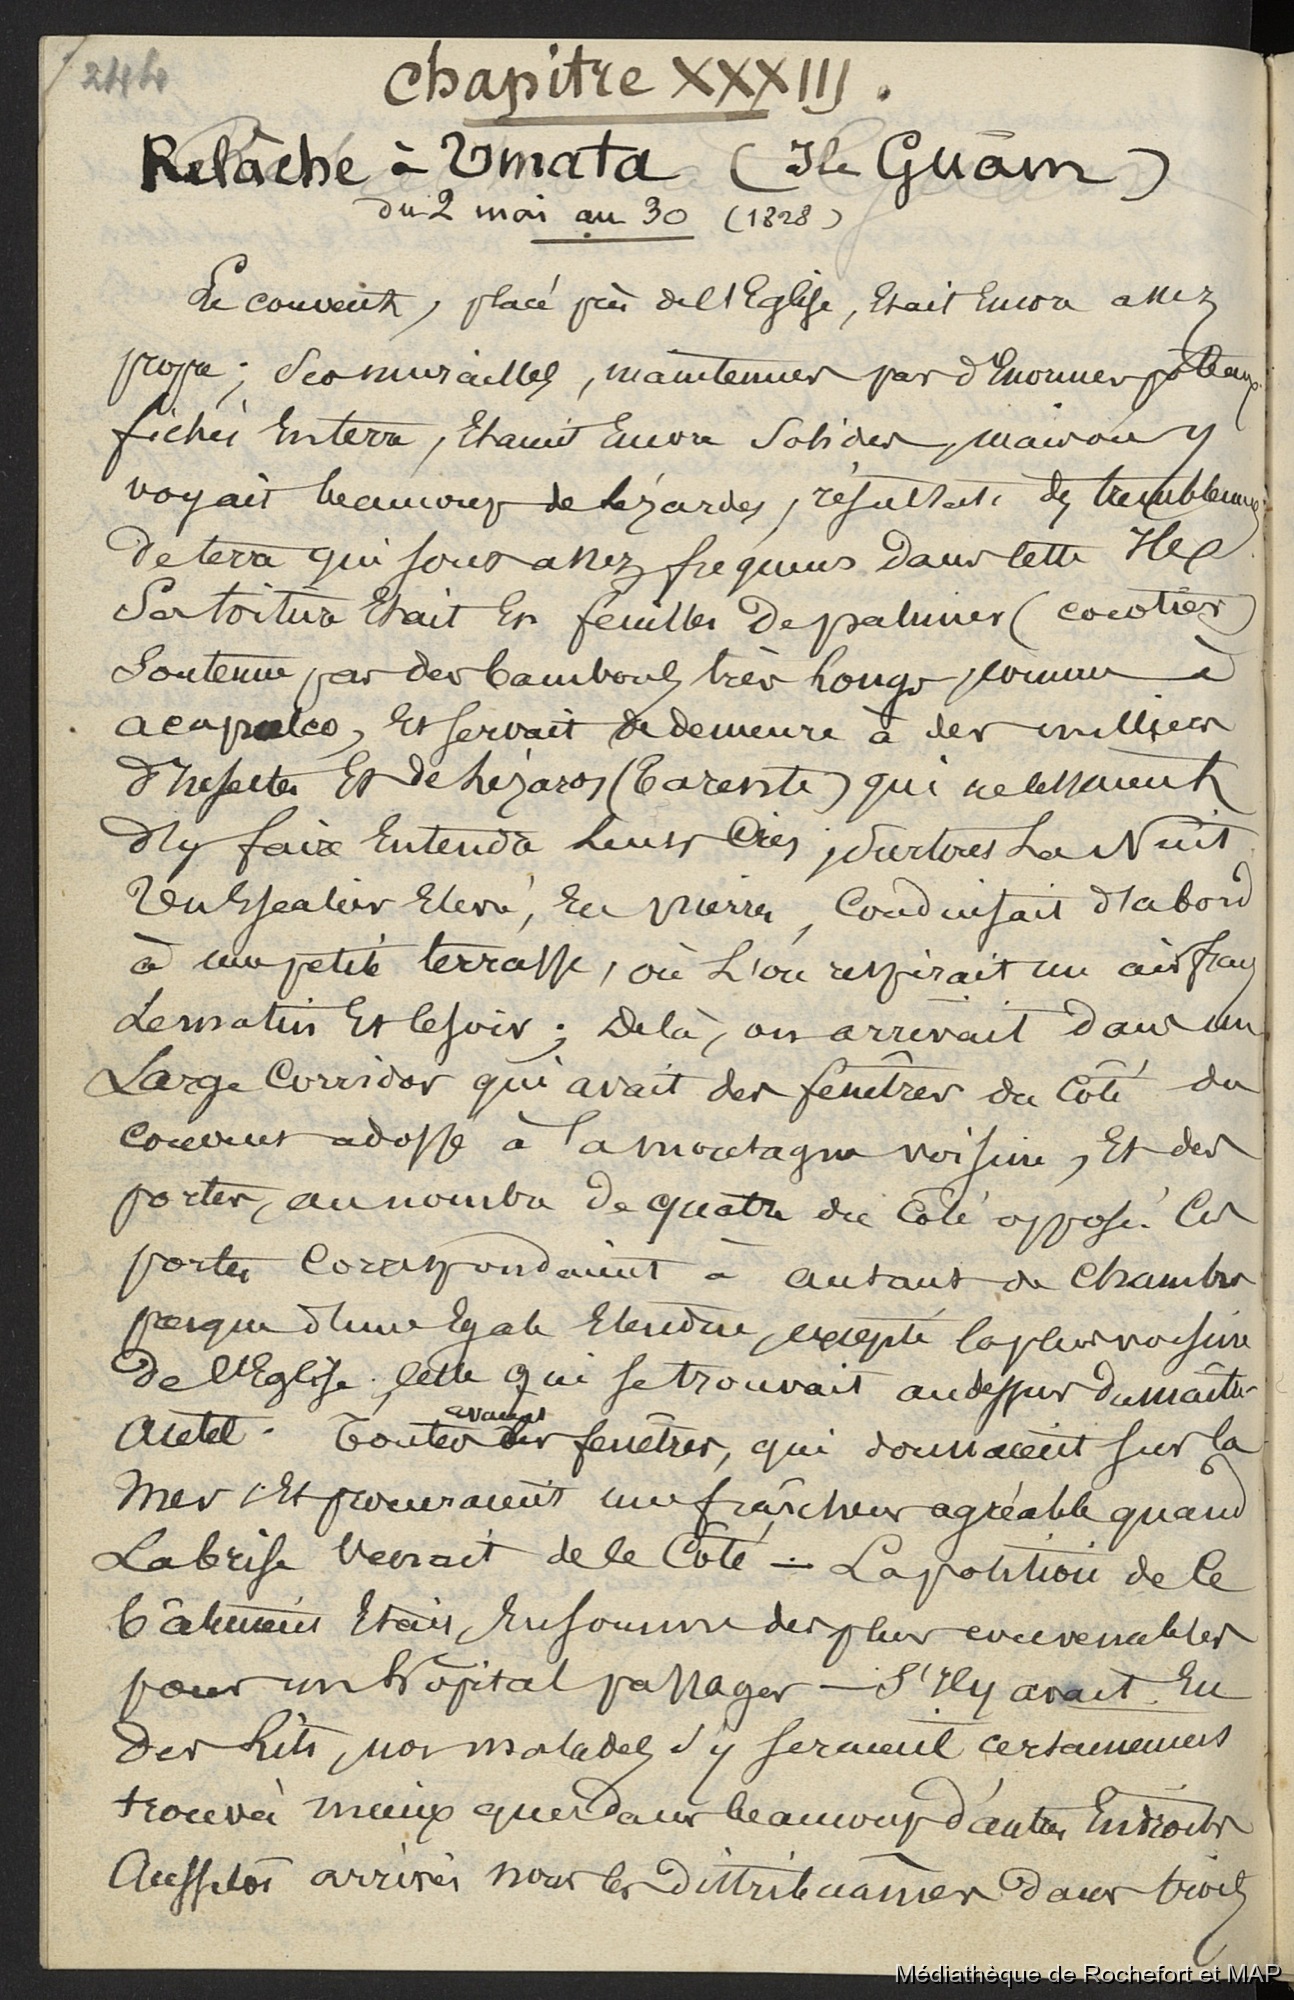 244
Chapitre XXXIII.
Relâche à Umata (Ile Guam)
du 2 mai au 30 (1828)
Le couvent, placé près de l'Eglise, Etait Encore assez
propre ; ses murailles, maintenues par d'Enormes poteaux
fichés En terre, Etaient Encore solides, mais on y
voyait beaucoup de lézardes, résultats des tremblemens
de terre qui sont assez frequens dans cette Ile
Sa toiture Etait En feuilles de palmier (cocotier)
Soutenue par des bambous très longs, comme à
acapulco, Et servait de demeure à des milliers
d'Insectes Et de Lézards (tarente) qui ne cessaient
d'y faire Entendre leurs Cris, surtout La Nuit
Un Escalier Elevé, En pierre, Conduisait d'abord
à une petite terrasse, où L'on respirait un air frais
Le matin Et le soir ; De là, on arrivait dans un
Large Corridor qui avait des fenêtres du Côté du
Couvent adossé à la montagne voisine, Et des
portes, au nombre de quatre du Côté opposé. Ces
portes Correspondaient à autant de Chambres
presque d'une Egale Etendue, excepté la plus voisine
de l'Eglise, celle qui se trouvait au dessus du maître
Autel. Toutes avaient des fenêtres, qui donnaient sur la
Mer, Et procuraient une fraîcheur agréable quand
La brise Venait de ce Côté — La position de Ce
bâtiment Etait, En somme des plus convenables
pour un hôpital passager — S'Il y avait Eu
Des Lits, nos malades s'y seraient certainement
trouvés mieux que dans beaucoup d'autres Endroits
Aussitôt arrivés nous les distribuâmes dans trois
Médiathèque de Rochefort et MAP